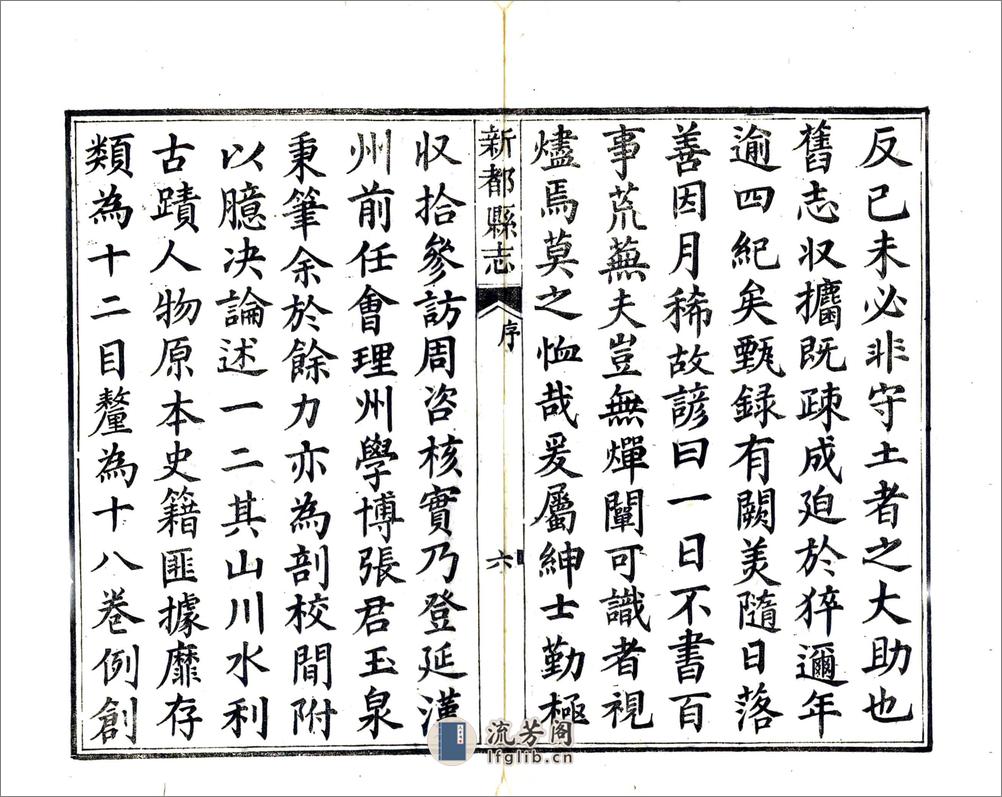 反已未必非守土者之大助也
舊志収攟既疎成迫於猝邇年
逾四紀矣甄録有闕美隨日落
善因月稀故諺曰一日不書百
事荒蕪夫豈無燀闡可識者視
燼焉莫之恤哉爰屬紳士勤極
新都縣志
序
六
収拾參訪周咨核實乃登延漢
州前任會理州學博張君玉泉
秉筆余於餘力亦為剖校間附
以臆决論述一二其山川水利
古蹟人物原本史籍匪據靡存
類為十二目釐為十八巻例創
流芳阁
lfglib.cn